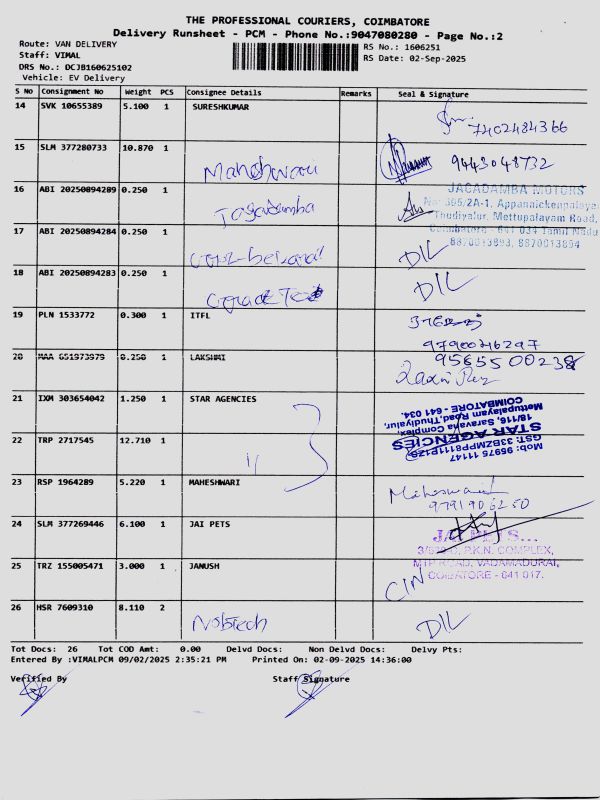 THE PROFESSIONAL COURIERS, COIMBATORE
Delivery Runsheet - PCM - Phone No.:9047080280 - Page No.:2
Route: VAN DELIVERY
Staff: VIMAL
DRS No.: DCJB160625102
Vehicle: EV Delivery
RS No.: 1606251
RS Date: 02-Sep-2025
S No Consignment No Weight PCS Consignee Details Remarks Seal & Signature
14 SVK 10655389 5.100 1 SURESHKUMAR
7402484366
15 SLM 377280733 10.870 1
Maheshwari 9443048732
16 ABI 20250894289 0.250 1
Jagadamba
JAGADAMBA MOTORS
No: 395/2A-1, Appanaickenpalayam
Thudiyalur, Mettupalayam Road,
Coimbatore - 641 034 Tamil Nadu
8870013893, 8870013894
17 ABI 20250894284 0.250 1
DIL
18 ABI 20250894283 0.250 1
DIL
19 PLN 1533772 0.300 1 ITFL
9790046297
20 MAA 651973979 0.250 1 LAKSHMI
9565500238
21 IXM 303654042 1.250 1 STAR AGENCIES
STAR AGENCIES
18/116, Saravana Complex,
Mettupalayam Road, Thudiyalur,
COIMBATORE - 641 034.
Mob: 95975 11147
22 TRP 2717545 12.710 1
23 RSP 1964289 5.220 1 MAHESHWARI
Maheswari
9791906250
24 SLM 377269446 6.100 1 JAI PETS
P.K.N. COMPLEX,
MTP ROAD, VADAMADURAI,
COIBATORE - 641 017.
25 TRZ 155005471 3.000 1 JANUSH
CIN
26 HSR 7609310 8.110 2
Nobtech DIL
Tot Docs: 26 Tot COD Amt: 0.00 Delvd Docs: Non Delvd Docs: Delvy Pts:
Entered By :VIMALPCM 09/02/2025 2:35:21 PM Printed On: 02-09-2025 14:36:00
Verified By Staff Signature